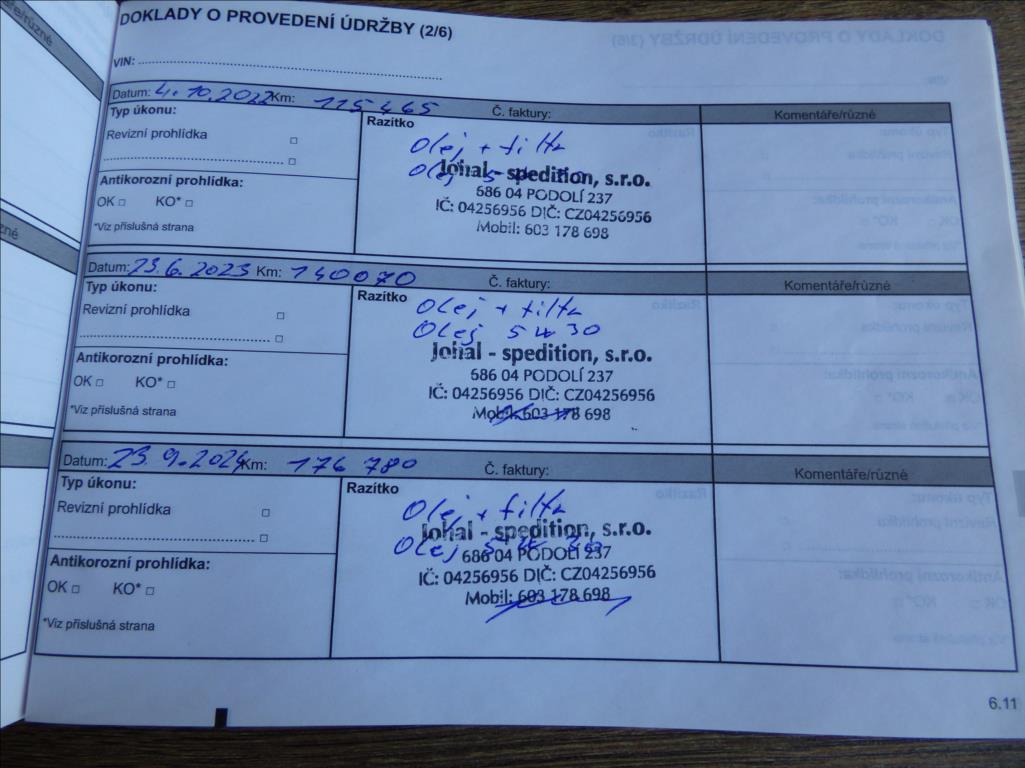 DOKLADY O PROVEDENÍ ÚDRŽBY (2/6)
VIN:
Datum: 4.10.2022 Km: 115465 Č. faktury: Komentáře/různé
Typ úkonu:
Revizní prohlídka
Antikorozní prohlídka:
OK KO*
*Viz příslušná strana
Razítko
Olej + filtr
Olej 5
Johal - spedition, s.r.o.
686 04 PODOLÍ 237
IČ: 04256956 DIČ: CZ04256956
Mobil: 603 178 698
Datum: 23.6.2023 Km: 140070 Č. faktury: Komentáře/různé
Typ úkonu:
Revizní prohlídka
Antikorozní prohlídka:
OK KO*
*Viz příslušná strana
Razítko
Olej + filtr
Olej 5W30
Johal - spedition, s.r.o.
686 04 PODOLÍ 237
IČ: 04256956 DIČ: CZ04256956
Mobil: 603 178 698
Datum: 23.9.2024 Km: 176 780 Č. faktury: Komentáře/různé
Typ úkonu:
Revizní prohlídka
Antikorozní prohlídka:
OK KO*
*Viz příslušná strana
Razítko
Olej + filtr
Olej 5W30
Johal - spedition, s.r.o.
686 04 PODOLÍ 237
IČ: 04256956 DIČ: CZ04256956
Mobil: 603 178 698
6.11